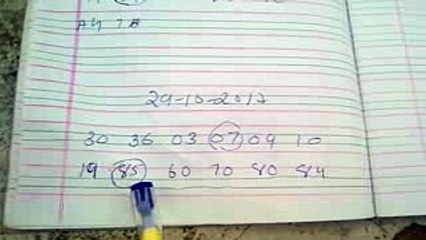 29-10-2017
30 36 03 07 09 10
19 85 60 70 80 84